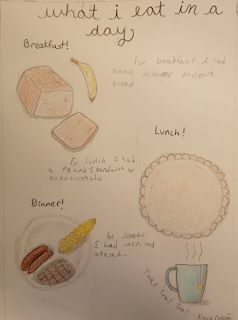 what i eat in a
day
Breakfast!
for breakfast I had
some banana
bread
Lunch!
for lunch I had
a PB and J sandwich
Dinner!
for dinner
I had corn and
steak.
Tea! Tea! Tea!